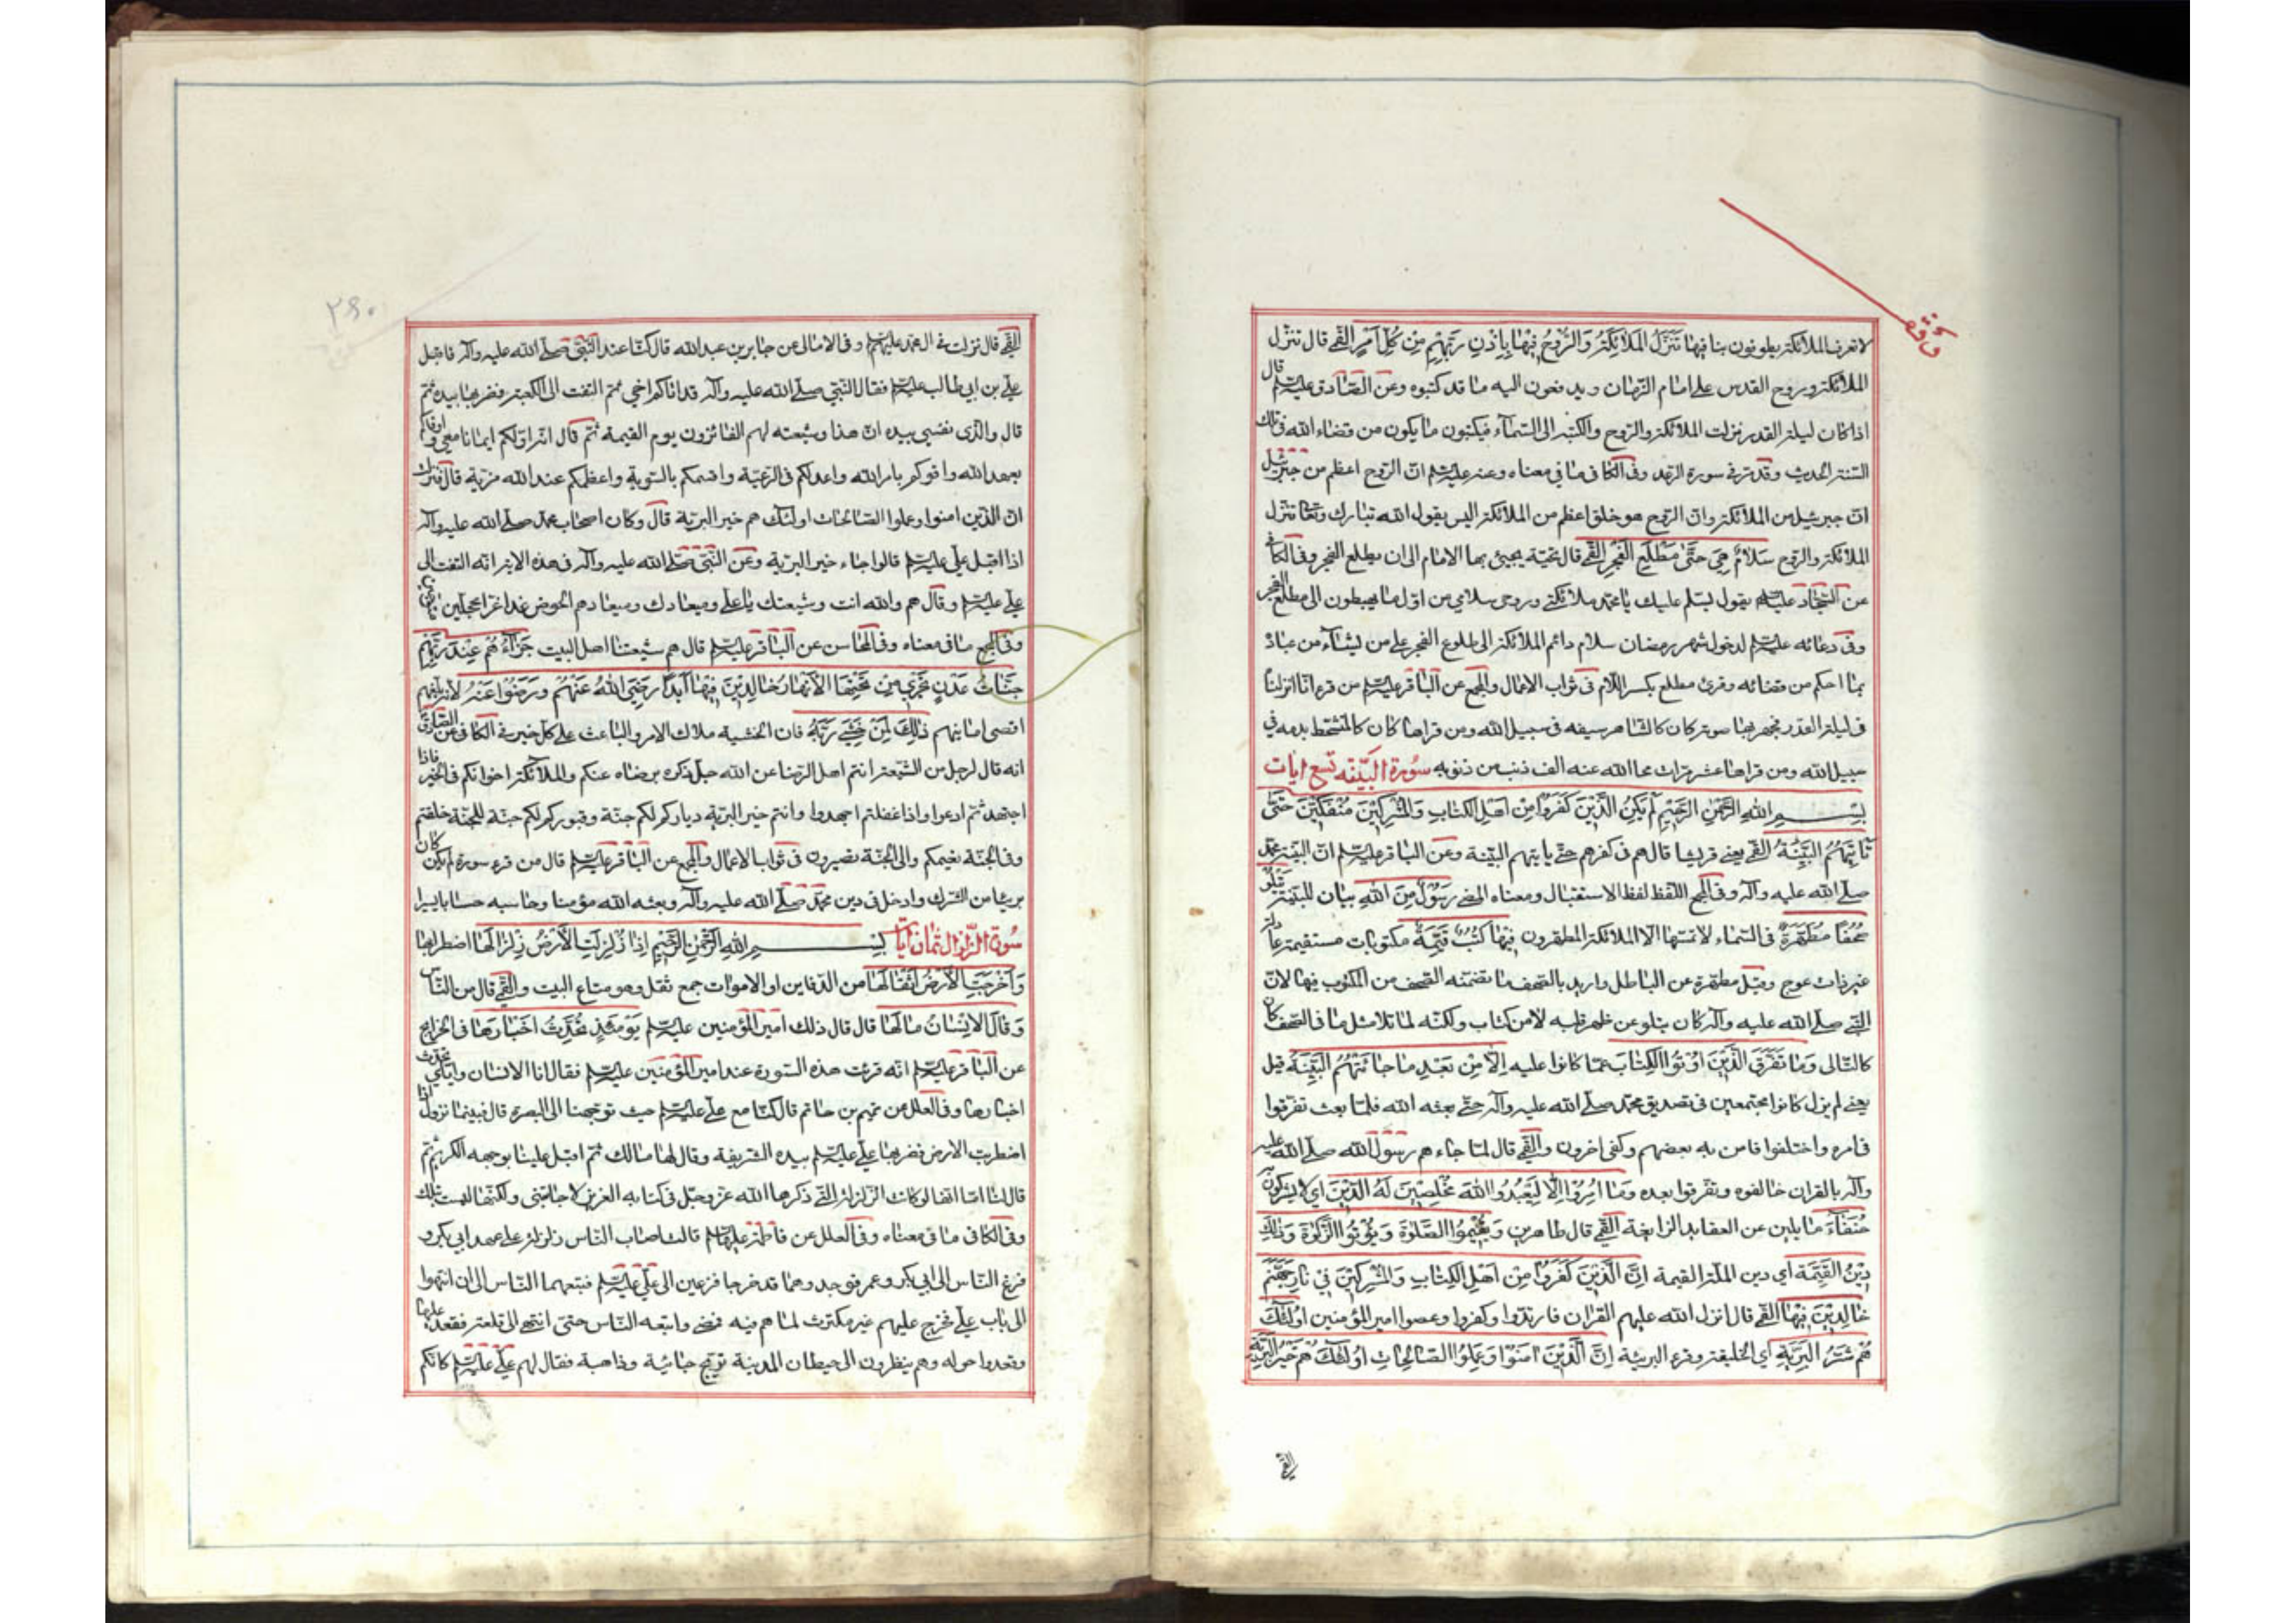 لا تعرف الملائكة يطوفون بنا فيها تَنَزَّلُ المَلائِكَةُ وَالرُّوحُ فِيهَا بِاِذْنِ رَبِّهِمْ مِنْ كُلِّ اَمْرٍ القمّي قال تنزل
الملائكة وروح القدس على امام الزمان ويدفعون اليه ما قد كتبوه وعن الصّادق عليه السلم قال
اذا كان ليلة القدر نزلت الملائكة والروح والكتبة الى السّمآء فيكتبون ما يكون من قضاء الله فى تلك
السّنة الحديث وقد مرّ فى سورة وفى الكافى ما فى معناه وعنه عليه السلم انّ الرّوح اعظم من جبرئيل
انّ جبرئيل من الملائكة وانّ الروح هو خلق اعظم من الملائكة اليس يقول الله تبارك وتعا تنزل
الملائكة والروح سَلامٌ هِىَ حَتّى مَطْلَعِ الْفَجْرِ القمّي قال تحيّة يحيّى بها الامام الى ان يطلع الفجر وفى الكافى
عن السّجّاد عليه السلم يقول يسلّم عليك يا محمّد ملائكتى وروحى سلامى من اوّل ما يهبطون الى مطلع الفجر
وفى دعائه عليه السلم لدخول شهر رمضان سلام دائم الملائكة الى طلوع الفجر على من يشآء من عباده
بما احكم من قضائه وقرئ مطلع بكسر اللّام فى ثواب الاعمال والمجمع عن الباقر عليه السلم من قرء انّا انزلناه
فى ليلة القدر يجهر بها صوته كان كالشاهر سيفه فى سبيل الله ومن قراها كان كالمتشحّط بدمه فى
سبيل الله ومن قراها عشر مرّات محا الله عنه الف ذنب من ذنوبه سُورة البيّنه تسع ايات
بِسْمِ اللهِ الرَّحْمنِ الرَّحِيمِ لَمْ يَكُنِ الَّذِينَ كَفَرُوا مِنْ اَهْلِ الْكِتابِ وَالْمُشْرِكِينَ مُنْفَكِّينَ حَتّى
تَأْتِيَهُمُ الْبَيِّنَةُ القمّي يعنى قريشا قال هم فى كفرهم حتى ياتيهم البيّنة وعن الباقر عليه السلم انّ البيّنة محمّد
صلّى الله عليه وآله وفى المجمع اللّفظ لفظ الاستقبال ومعناه المضى رَسُولٌ مِنَ اللهِ بيان للبيّنة يَتْلُو
صُحُفًا مُطَهَّرَةً فى السّماء لا تمسّها الا الملائكة المطهّرون فِيهَا كُتُبٌ قَيِّمَةٌ مكتوبات مستقيمة عادلة
غير ذات عوج وقيل مطهّرة عن الباطل واريد بالصّحف ما تضمنه الصّحف من المكتوب فيها لانّ
النّبى صلّى الله عليه وآله كان يتلو عن ظهر قلبه لا من كتاب ولكنّه لمّا تلا مثل ما فى الصّحف كان
كالتّالى وَمَا تَفَرَّقَ الَّذِينَ اُوتُوا الْكِتابَ عمّا كانوا عليه اِلّا مِنْ بَعْدِ ما جاءَتْهُمُ الْبَيِّنَةُ قيل
يعنى لم يزل كانوا مجتمعين فى تصديق محمّد صلّى الله عليه وآله حتّى بعثه الله فلمّا بعث تفرّقوا
فى امره واختلفوا فامن به بعضهم وكفر اخرون والقمّي قال لمّا جاءهم رسول الله صلّى الله عليه
وآله بالقران خالفوه وتفرّقوا بعده وَمَا اُمِرُوا اِلّا لِيَعْبُدُوا اللهَ مُخْلِصِينَ لَهُ الدِّينَ اى لا يشركون
حُنَفآءَ مايلين عن العقايد الزايغة القمّي قال طاهرين وَيُقِيمُوا الصَّلوةَ وَيُؤْتُوا الزَّكوةَ وَذلِكَ
دِينُ الْقَيِّمَةِ اى دين الملّة القيمة اِنَّ الَّذِينَ كَفَرُوا مِنْ اَهْلِ الْكِتابِ وَالْمُشْرِكِينَ فِى نارِ جَهَنَّمَ
خالِدِينَ فِيها القمّي قال انزل الله عليهم القران فارتدّوا وكفروا وعصوا امير المؤمنين اُولئِكَ
هُمْ شَرُّ الْبَرِيَّةِ اى الخليقة وقرء البريئة اِنَّ الَّذِينَ امَنُوا وَعَمِلُوا الصّالِحاتِ اُولئِكَ هُمْ خَيْرُ الْبَرِيَّةِ
القمّي
٢٤٠
القمّي قال نزلت فى ال محمّد عليهم السلم وفى الامالى عن جابر بن عبد الله قال كنّا عند النّبىّ صلّى الله عليه وآله فاقبل
علىّ بن ابى طالب عليه السلم فقال النّبىّ صلّى الله عليه وآله قد اتاكم اخى ثمّ التفت الى الكعبة فضربها بيده ثمّ
قال والّذى نفسى بيده انّ هذا وشيعته لهم الفائزون يوم القيمة ثمّ قال انّه اوّلكم ايمانا معى واوفاكم
بعهد الله واقومكم بامر الله واعدلكم فى الرّعيّة واقسمكم بالسّوية واعظمكم عند الله مزيّة قال فنزلت
انّ الذين امنوا وعملوا الصّالحات اولئك هم خير البريّة قال وكان اصحاب محمّد صلّى الله عليه وآله
اذا اقبل علىّ عليه السلم قالوا جاء خير البريّة وعن النّبىّ صلّى الله عليه وآله فى هذه الاية انّه التفت الى
علىّ عليه السلم وقال هم والله انت وشيعتك يا علىّ وميعادك وميعادهم الحوض غدا غرّا محجّلين
وفى المجمع ما فى معناه وفى المحاسن عن الباقر عليه السلم قال هم شيعتنا اهل البيت جَزآؤُهُمْ عِنْدَ رَبِّهِمْ
جَنّاتُ عَدْنٍ تَجْرِى مِنْ تَحْتِهَا الْاَنْهارُ خالِدِينَ فِيها اَبَدًا رَضِىَ اللهُ عَنْهُمْ وَرَضُوا عَنْهُ لانّه بلغهم
اقصى امانيهم ذلِكَ لِمَنْ خَشِىَ رَبَّهُ فان الخشية ملاك الامر والباعث على كلّ خير فى الكافى عن الصّادق
انه قال لرجل من الشّيعة انتم اهل الرّضا عن الله جلّ ذكره برضاه عنكم والملائكة اخوانكم فى الخير فاذا
اجتهدتم ادعوا واذا غفلتم اجهدوا وانتم خير البريّة دياركم لكم جنّة وقبوركم لكم جنّة للجنّة خلقتم
وفى الجنّة نعيمكم والى الجنّة تصيرون فى ثواب الاعمال والمجمع عن الباقر عليه السلم قال من قرء سورة لم يكن كان
بريئا من الشّرك وادخل فى دين محمّد صلّى الله عليه وآله وبعثه الله مؤمنا وحاسبه حسابا يسيرا
سُورة الزّلزال ثمان آيات بِسْمِ اللهِ الرَّحْمنِ الرَّحِيمِ اِذَا زُلْزِلَتِ الْاَرْضُ زِلْزالَها اضطرابها
وَاَخْرَجَتِ الْاَرْضُ اَثْقالَها من الدّفاين او الاموات جمع ثقل وهو متاع البيت والقمّي قال من النّاس
وَقالَ الْاِنْسانُ مالَها قال قال ذلك امير المؤمنين عليه السلم يَوْمَئِذٍ تُحَدِّثُ اَخْبارَها فى الخرايج
عن الباقر عليه السلم انّه قرئت هذه السّورة عند امير المؤمنين عليه السلم فقال انا الانسان وايّاى تحدّث
اخبارها وفى العلل عن تميم بن حاتم قال كنّا مع علىّ عليه السلم حيث توجّهنا الى البصرة قال فبينما نزول اذا
اضطربت الارض فضربها علىّ عليه السلم بيده الشريفة وقال لها مالك ثمّ اقبل علينا بوجهه الكريم ثمّ
قال لنا اما انها لو كانت الزلزلة التى ذكرها الله عزّ وجلّ فى كتابه العزيز لاجابتنى ولكنّها ليست بتلك
وفى الكافى ما فى معناه وفى العلل عن فاطمة عليها السلم قالت اصاب النّاس زلزلة على عهد ابى بكر و
فزع النّاس الى ابى بكر وعمر فوجدوهما قد خرجا فزعين الى علىّ عليه السلم فتبعهما النّاس الى ان انتهوا
الى باب علىّ فخرج عليهم غير مكترث لما هم فيه فمضى واتبعه النّاس حتى انتهى الى تلعة فقعد عليها
وقعدوا حوله وهم ينظرون الى حيطان المدينة ترتجّ جائية وذاهبة فقال لهم علىّ عليه السلم كانّكم